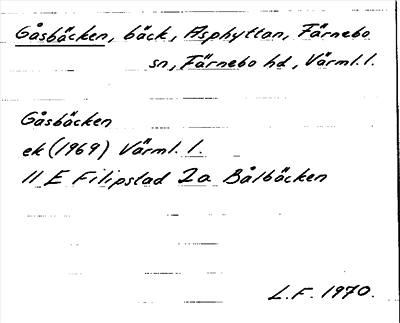 Gåsbäcken, bäck, Asphyttan, Färnebo
sn, Färnebo hd, Värml. l.
Gåsbäcken
ek (1969) Värml. l.
11 E Filipstad 2a Bålbäcken
L.F. 1970.